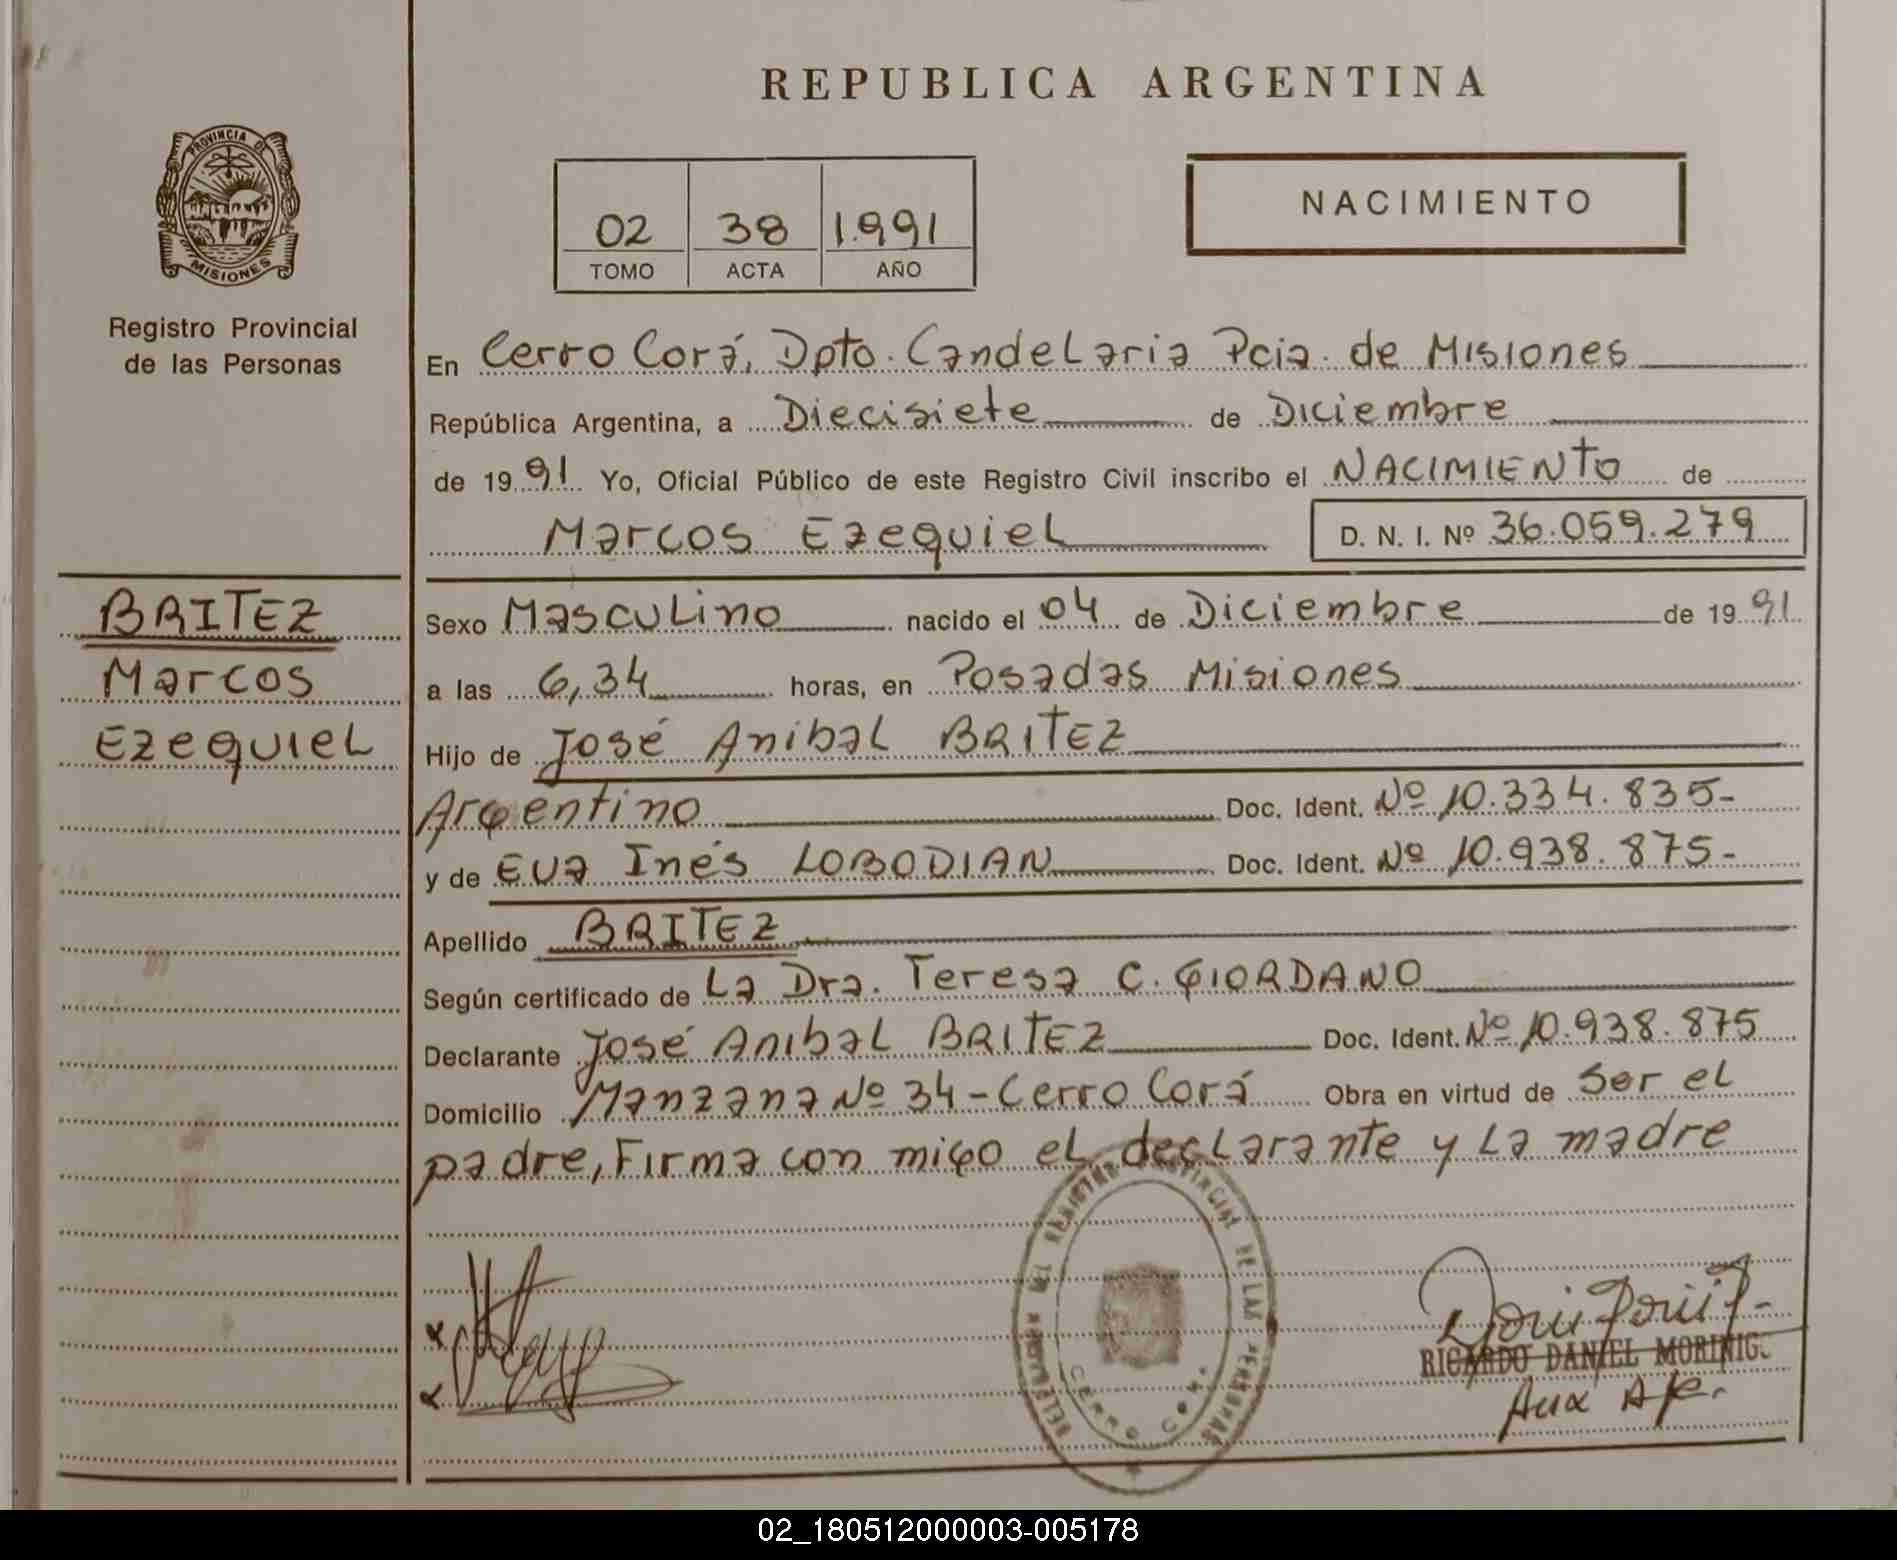 REPUBLICA ARGENTINA
PROVINCIA DE
MISIONES
Registro Provincial
de las Personas
02 38 1.991
TOMO ACTA AÑO
NACIMIENTO
En Cerro Corá, Dpto. Candelaria Pcia. de Misiones
República Argentina, a Diecisiete de Diciembre
de 1991 Yo, Oficial Público de este Registro Civil inscribo el NACIMIENTO de
Marcos Ezequiel D. N. I. Nº 36.059.279
BRITEZ
Marcos
Ezequiel
Sexo Masculino nacido el 04 de Diciembre de 1991
a las 6,34 horas, en Posadas Misiones
Hijo de José Anibal BRITEZ
Argentino Doc. Ident. Nº 10.334.835-
y de Eva Inés LOBODIAN Doc. Ident. Nº 10.938.875-
Apellido BRITEZ
Según certificado de La Dra. Teresa C. GIORDANO
Declarante José Anibal BRITEZ Doc. Ident. Nº 10.938.875
Domicilio Manzana Nº 34-Cerro Corá Obra en virtud de Ser el
padre, Firma con migo el declarante y La madre
DEL REGISTRO PROVINCIAL DE LAS PERSONAS
CERRO CORA
RICARDO DANIEL MORINIGO
Aux
02_180512000003-005178